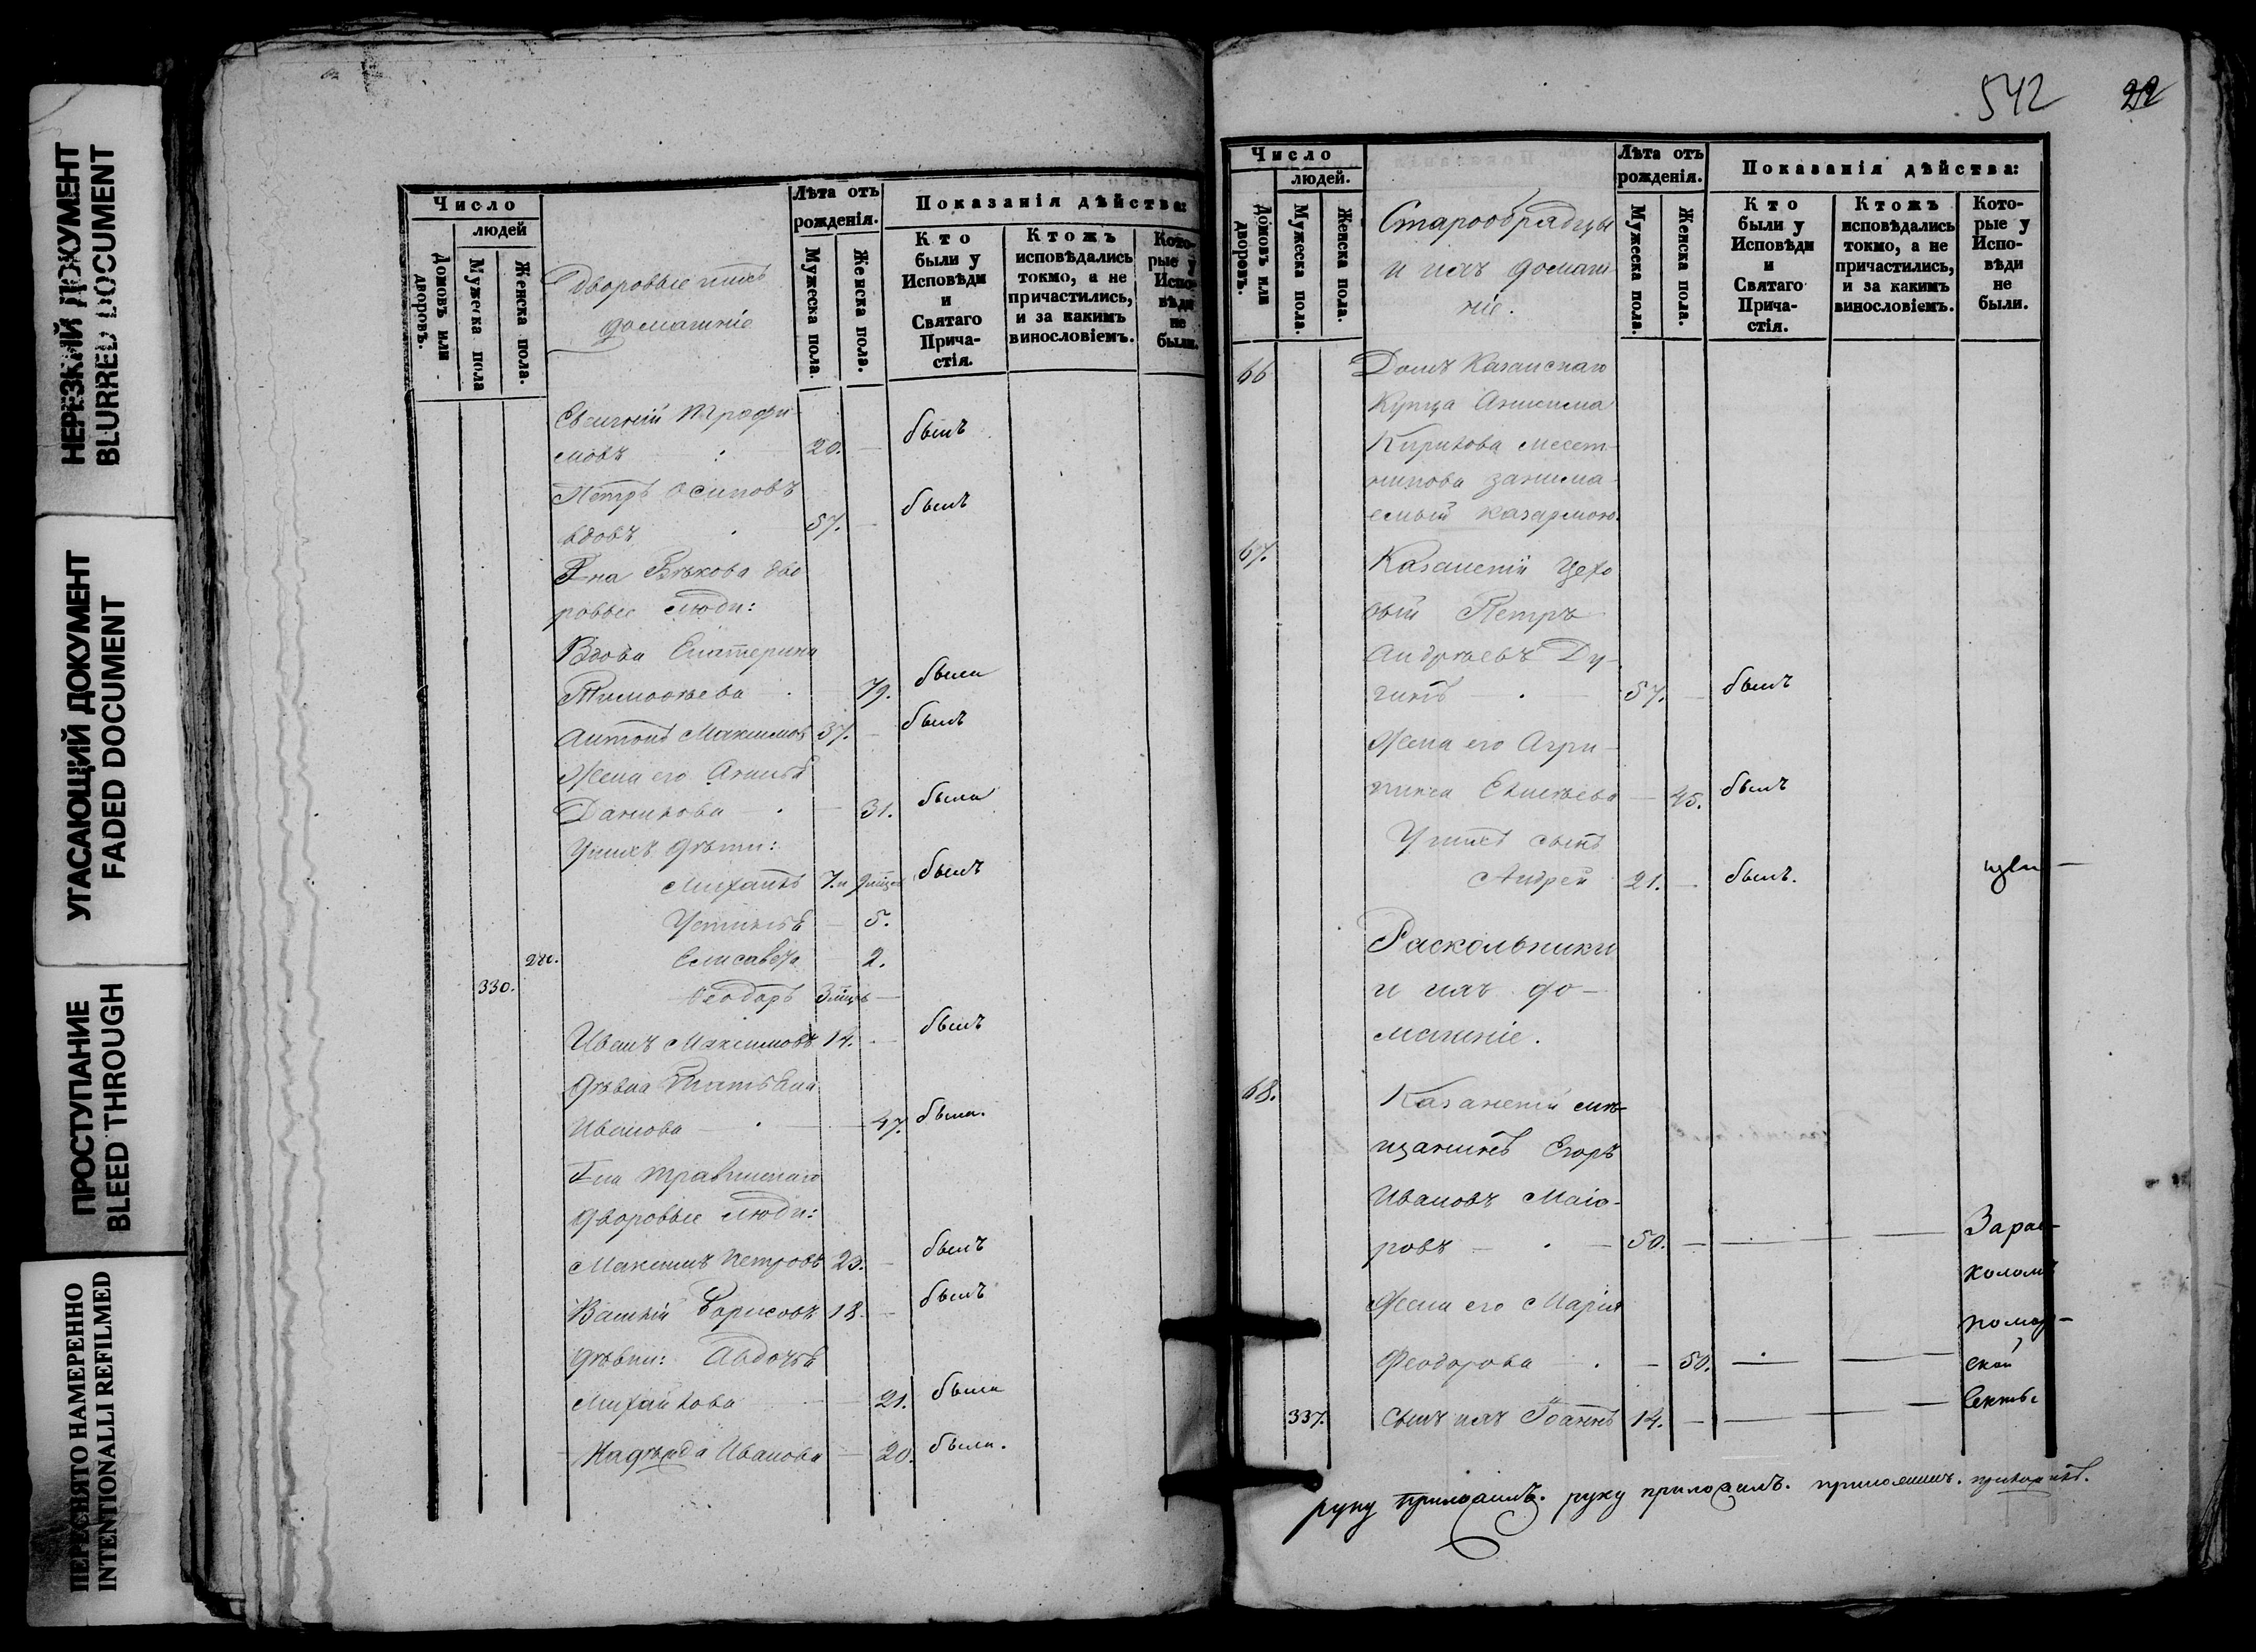 НЕРЕЗКИЙ ДОКУМЕНТ
BLURRED DOCUMENT
УГАСАЮЩИЙ ДОКУМЕНТ
FADED DOCUMENT
ПРОСТУПАНИЕ
BLEED THROUGH
ПЕРЕСНЯТО НАМЕРЕННО
INTENTIONALLI REFILMED
Число
людей
Домовъ или дворовъ.
Мужеска пола
Женска пола.
Дворовые и ихъ
домашніе
Лѣта отъ
рожденія.
Мужеска пола.
Женска пола.
Показанія дѣйства:
Кто
были у
Исповѣди
и
Святаго
Прича-
стія.
Ктожъ
исповѣдались
токмо, а не
причастились,
и за какимъ
винословіемъ.
Кото-
рые у
Испо-
вѣди
не
были.
Трофи
мовъ 20. — былъ
Петръ Осиповъ
вдовъ 57. — былъ
дво
ровые люди:
Вдова Екатерина
Тимоѳеева — 79. была
Антонъ Максимовъ 37. — былъ
Жена его
Данилова — 31. была
У нихъ дѣти:
Михаилъ 7. и былъ
Устинья — 5.
280. Елисавета — 2.
330. Ѳеодоръ —
Иванъ Максимовъ 14. — былъ
Дѣвка Татьяна
Иванова — 47. была.
Дворовые люди:
Максимъ Петровъ 23. — былъ
Василій Борисовъ 18. — былъ
Дѣвки: Авдотья
Михайлова — 21. была
Надежда Иванова — 20. была.
542 22
Число
людей.
Домовъ или дворовъ.
Мужеска пола.
Женска пола.
Старообрядцы
и ихъ домаш-
ніе.
Лѣта отъ
рожденія.
Мужеска пола.
Женска пола.
Показанія дѣйства:
Кто
были у
Исповѣди
и
Святаго
Прича-
стія.
Ктожъ
исповѣдались
токмо, а не
причастились,
и за какимъ
винословіемъ.
Кото-
рые у
Испо-
вѣди
не
были.
66 Домъ Казанскаго
Купца Анисима
Кирилова Месет-
никова занима-
емый казармою.
67. Казанскій цехо
вый Петръ
Андреевъ Ду-
гинъ 57. — былъ
Жена его Агри-
пина Елисѣева — 45. былъ
У нихъ сынъ
Андрей 21. — былъ.
Раскольники
и ихъ до-
машніе.
68. Казанскій мѣ-
щанинъ Егоръ
Ивановъ Маіо-
ровъ — 50. — За рас-
коломъ
Жена его Марія
помор-
Феодорова — 50. — ской
секты
337. Сынъ ихъ Іоаннъ 14. —
руку приложилъ. руку приложилъ.